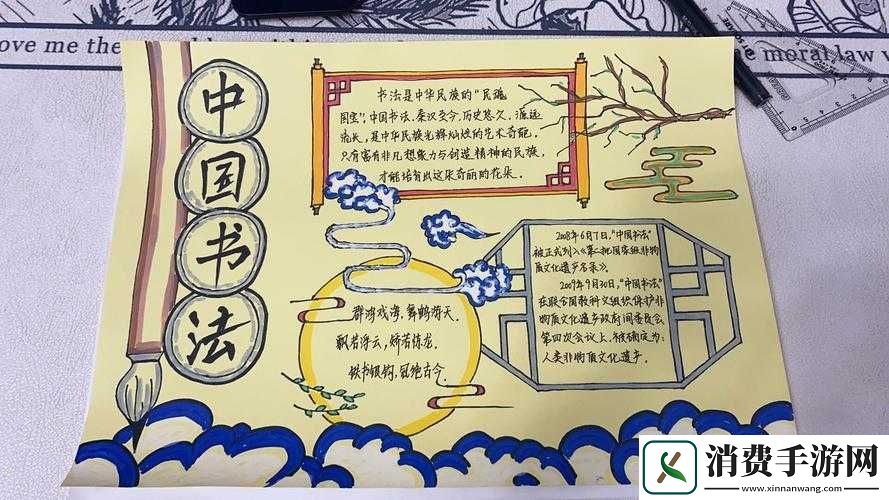 ove me the
the moral law w
中
国
书
法
书法是中华民族的"民魂
国宝",中国书法,秦汉至今,历史悠久,源远
流长,是中华民族光辉灿烂的艺术奇葩,
只有富有非凡想象力与创造精神的民族,
才能培育出这朵奇丽的花朵。
2008年6月7日,"中国书法"
被正式列入《第二批国家级非物
质文化遗产名录》。
2009年9月30日,"中国书法"
在联合国教科文组织保护非
物质文化遗产政府间委员会
第四次会议上,被确定为:
人类非物质文化遗产。
群鸿戏海,舞鹤游天。
飘若浮云,矫若惊龙。
铁书银钩,冠绝古今。
消费手游网
www.xinnanwang.com